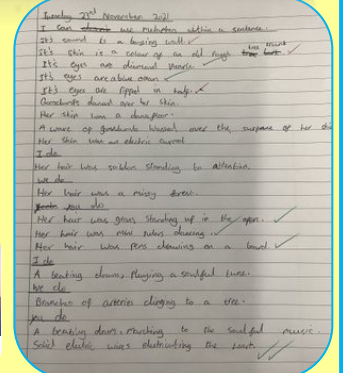 Tuesday 23rd November 2021
I can use metaphor within a sentence.
It's sound is a buzing wall.
It's skin is a colour of an old rough tree trunk
It's eyes are diamond pearls.
It's eyes are a blue ocean
It's eyes are fipped in half.
Goosebumps danced over her skin.
Her skin was a dancefloor.
A wave of goosebumps blasted over the surface of her skin
Her skin was an electric current
I do
Her hair was soldiers standing to attention.
we do
Her hair was a misty forest.
you do
Her hair was grass standing up in the open.
Her hair was mini rulers dancing.
Her hair was pens chewing on a bowl.
I do
A beating drum, playing a soulful tune.
We do
Branches of arteries clinging to a tree.
you do
A beating drum, marching to the soulful music.
Solid electric wires electricuting the heart.